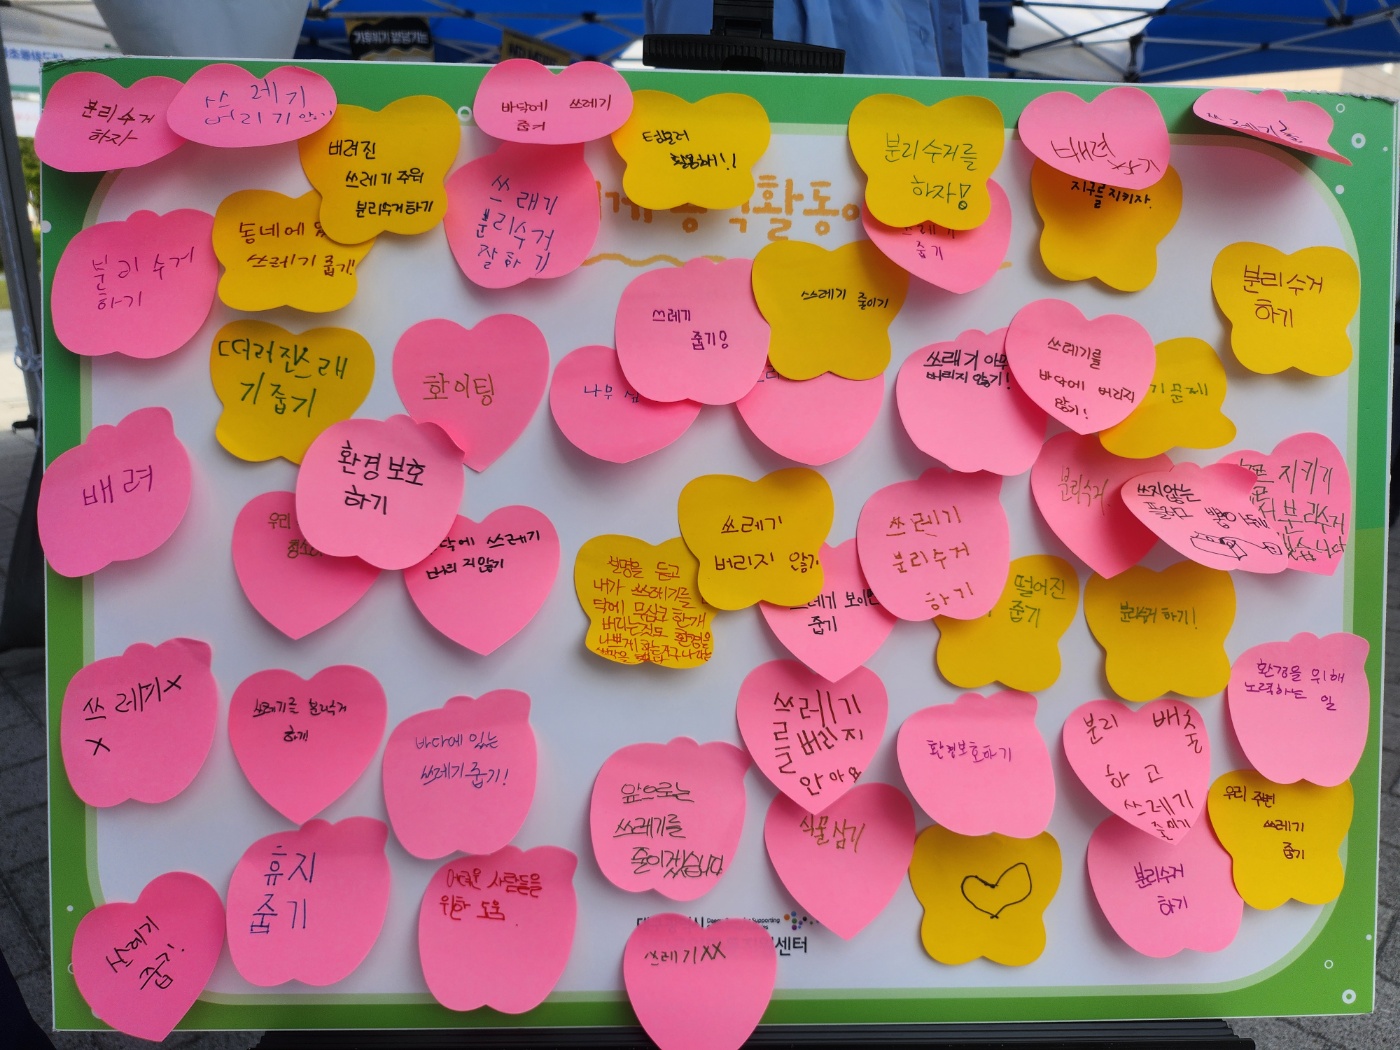 분리수거
하자
쓰레기
버리기
바닥에 쓰레기
줍기
텀블러
활용해!!
분리수거를
하자!
배려
지구를 지키자.
버려진
쓰레기 주워
분리수거 하기
쓰래기
분리수거
잘하기
동네에
쓰레기 줍기!
분리수거
하기
쓰레기
줍기
쓰레기 줄이기
쓰레기
줍기
분리수거
하기
떠러진쓰래
기줍기
화이팅
나무
쓰래기 아무
버리지 않기!
쓰레기를
바닥에 버리지
않기!
문제
배려
환경보호
하기
우리
쓰레기
버리지 않기
쓰레기
분리수거
하기
분리수거
쓰지않는
지키기
분리수거
쓰레기
버리지않기
설명을 듣고
내가 쓰레기를
무심코 한개
버리는것도 환경을
쓰레기 보이면
줍기
떨어진
줍기
분리수거 하기!
환경을 위해
노력하는 일
쓰레기X
X
쓰레기를 분리수거
하기
바다에 있는
쓰레기 줍기!
쓰레기
를 버리지
안아요
환경보호하기
분리 배출
하고
쓰레기
줄이기
앞으로는
쓰레기를
줄이겠습니다
식물심기
우리 주변
쓰레기
줍기
휴지
줍기
어려운 사람들을
위한 도움
분리수거
하기
쓰레기
줍기!
쓰레기XX
센터